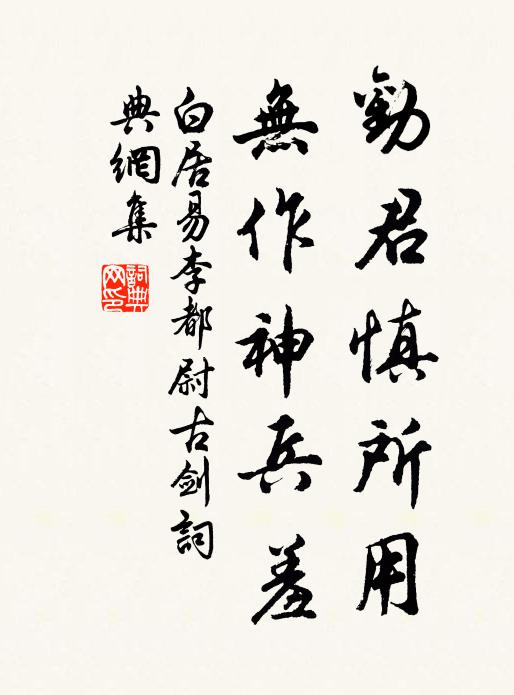 勸君慎所用
無作神兵羞
白居易李都尉古劍詞
典網集
詞典網印